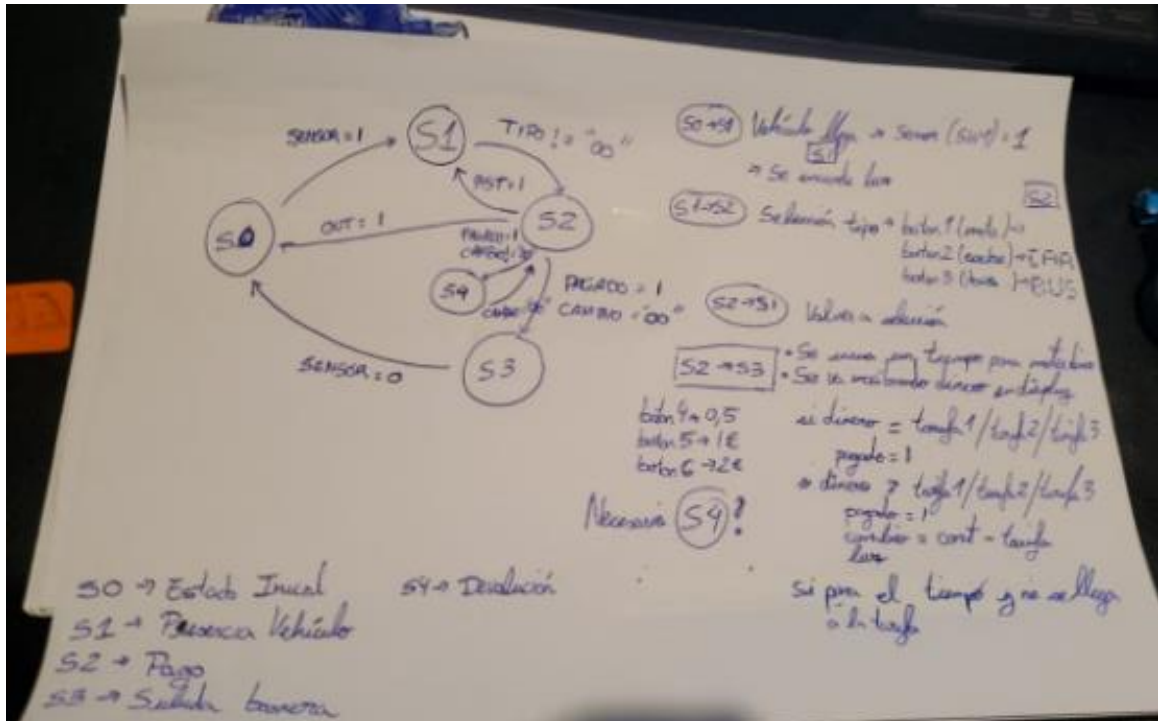 SENSOR = 1
S1
TIPO != "00"
RST=1
S0
OUT = 1
S2
PAGADO=1
S4
PAGADO = 1
CAMBIO = "00"
SENSOR = 0
S3
S0→S1 Vehículo llega → Sensor (SW1) = 1
S1
→ Se enciende luz
S2
S1→S2 Selección tipo → boton 1 (moto) →
boton 2 (coche) →
boton 3 (
S2→S1 Volver a selección
S2→S3 • Se inicia un tiempo para meter
• Se va mostrando dinero en display
boton 4 → 0,5
boton 5 → 1€
boton 6 → 2€
si dinero = tarifa 1/tarifa 2/tarifa 3
pagado = 1
dinero > tarifa 1/tarifa 2/tarifa 3
pagado = 1
cambio = cont - tarifa
luz
Necesario S4!
si pasa el tiempo y no se llega
a la tarifa
S0 → Estado Inicial
S4 → Devolución
S1 → Presencia Vehículo
S2 → Pago
S3 → Subida barrera